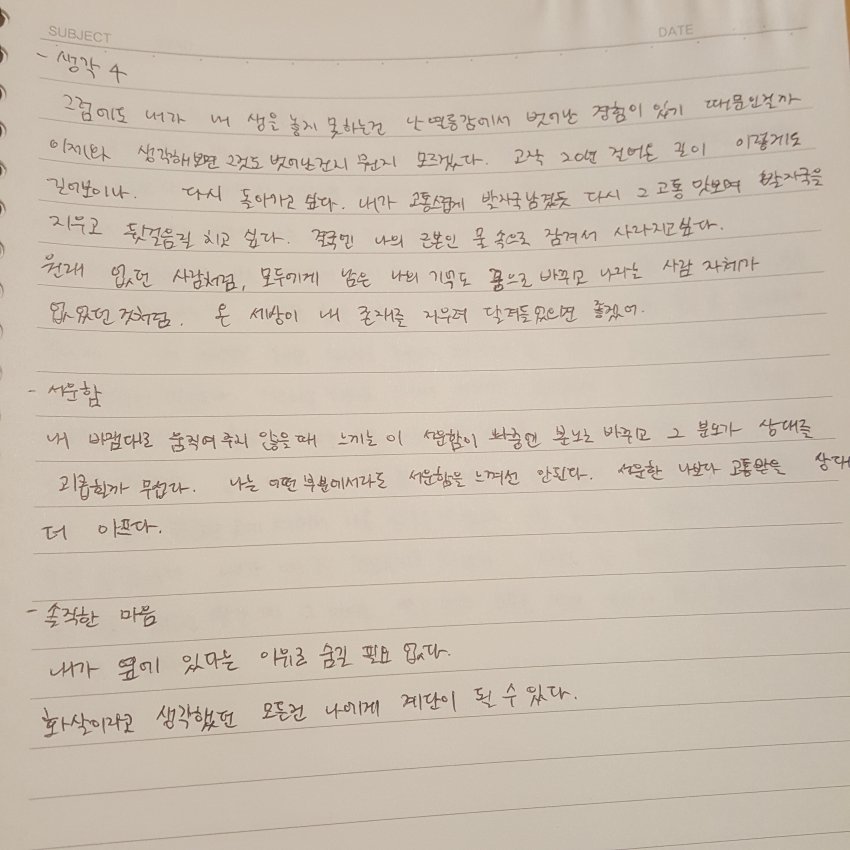 SUBJECT
DATE
- 생각 4
그럼에도 내가 내 생을 놓지 못하는건 난 열등감에서 벗어난 경험이 있기 때문인걸까
이제와 생각해보면 그것도 벗어난건지 뭔지 모르겠다. 고작 20년 걸어온 길이 이렇게도
길어보이나. 다시 돌아가고 싶다. 내가 고통스럽게 발자국남겼듯 다시 그 고통 맛보며 발자국을
지우고 뒷걸음질 치고 싶다. 결국엔 나의 근본인 물 속으로 잠겨서 사라지고싶다.
원래 없던 사람처럼, 모두에게 남은 나의 기억도 꿈으로 바뀌고 나라는 사람 자체가
없었던것처럼. 온 세상이 내 존재를 지우려 달려들었으면 좋겠어.
- 서운함
내 바램대로 움직여 주지 않을때 느끼는 이 서운함이 나중엔 분노로 바뀌고 그 분노가 상대를
괴롭힐까 무섭다. 나는 어떤 부분에서라도 서운함을 느껴선 안된다. 서운한 나보다 고통받을 상대
더 아프다.
- 솔직한 마음
내가 옆에 있다는 이유로 숨길 필요 없다.
화살이라고 생각했던 모든건 나에게 계단이 될 수 있다.